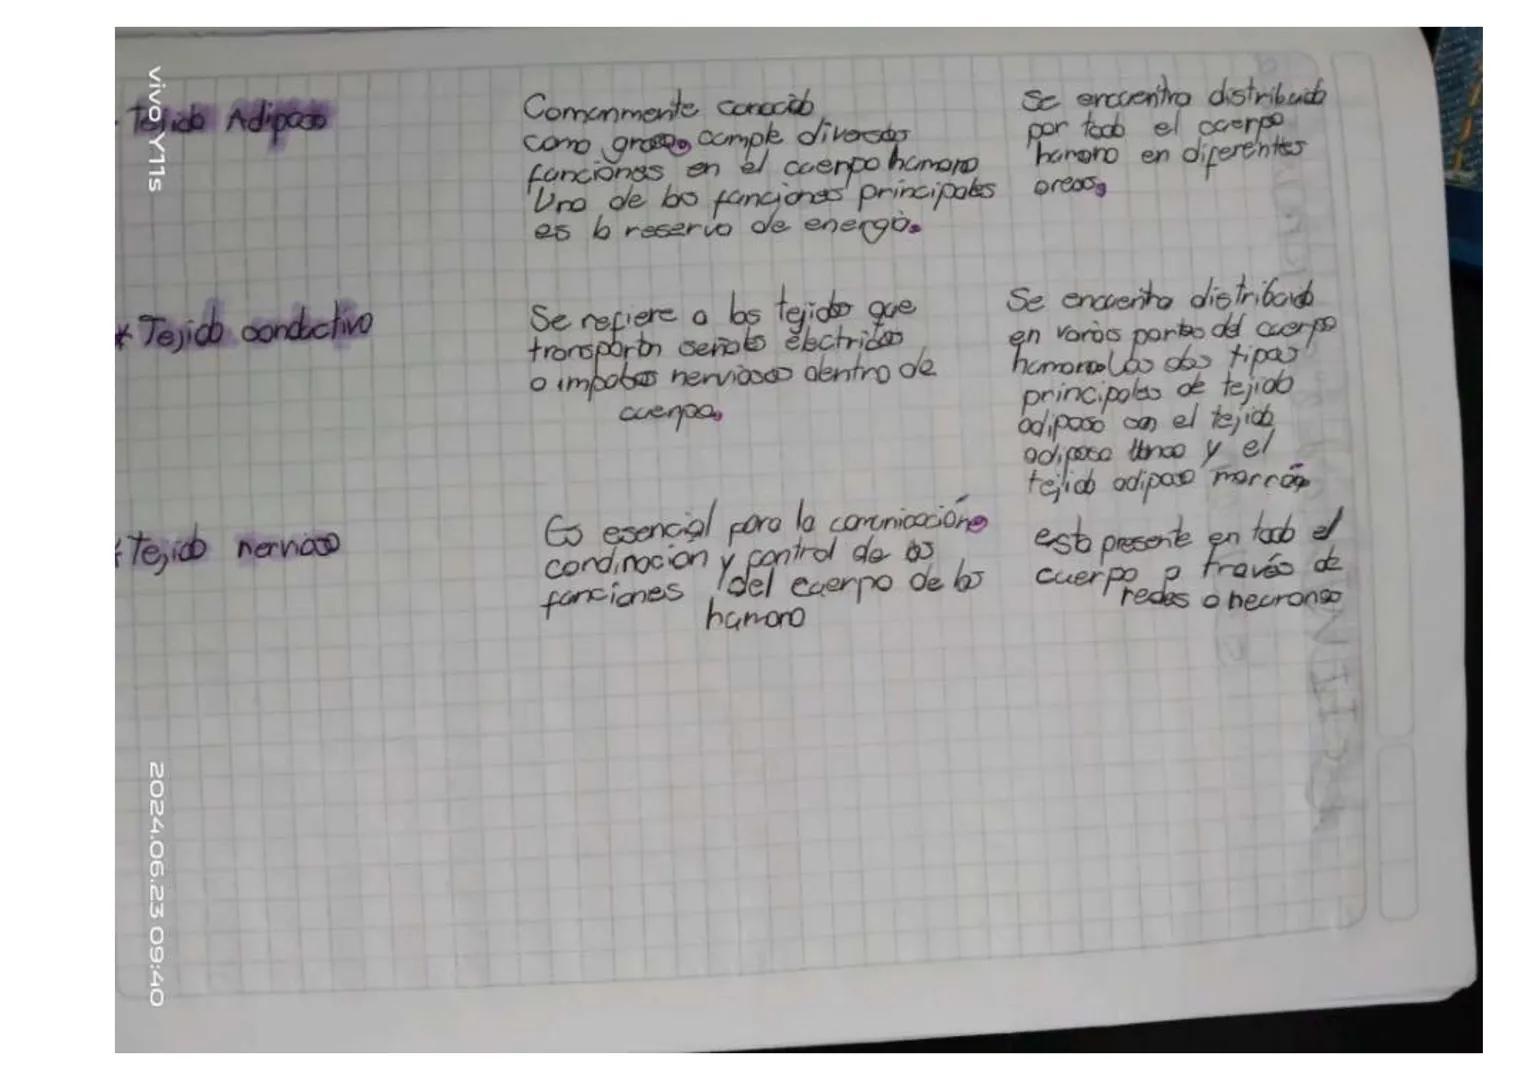 Tejido Adiposo
Comunmente conocido
como grasa, cumple diversas
funciones en el cuerpo humano
Una de las funciones principales
es la reserva de energía.
Se encuentra distribuido
por todo el cuerpo
humano en diferentes
areas,
* Tejido conductivo
Se refiere a los tejidos que
transportan señales électricas
o impulsos nerviosos dentro de
cuerpo,
Se encuentra distribuido
en varias partes del cuerpo
humano Las dos tipos
principales de tejido
adiposo son el tejido
adiposo blanco y el
tejido adiposo marrón
* Tejido nervioso
Es esencial para la comunicación
cordinación y control de las
funciones del cuerpo de los
humano
esta presente en todo el
cuerpo a través de
redes o neuronas
vivo Y11s
2024.06.23 09:40